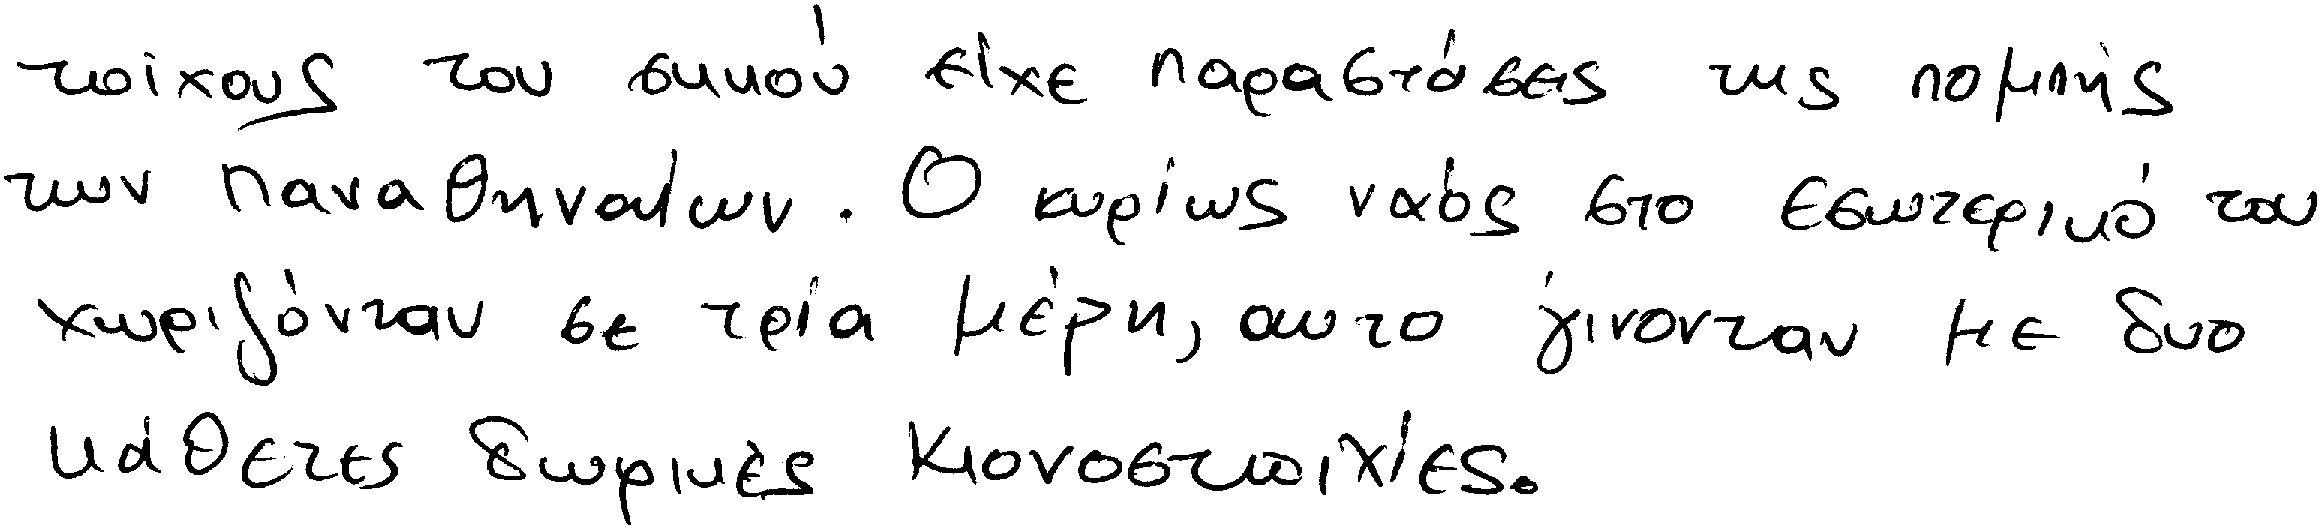 τοίχους του σηκού είχε παραστάσεις της πομπής
των Παναθηναίων. Ο κυρίως ναός στο εσωτερικό του
χωριζόνταν σε τρία μέρη, αυτο γίνονταν με δυο
κάθετες δωρικές κιονοστοιχίες.